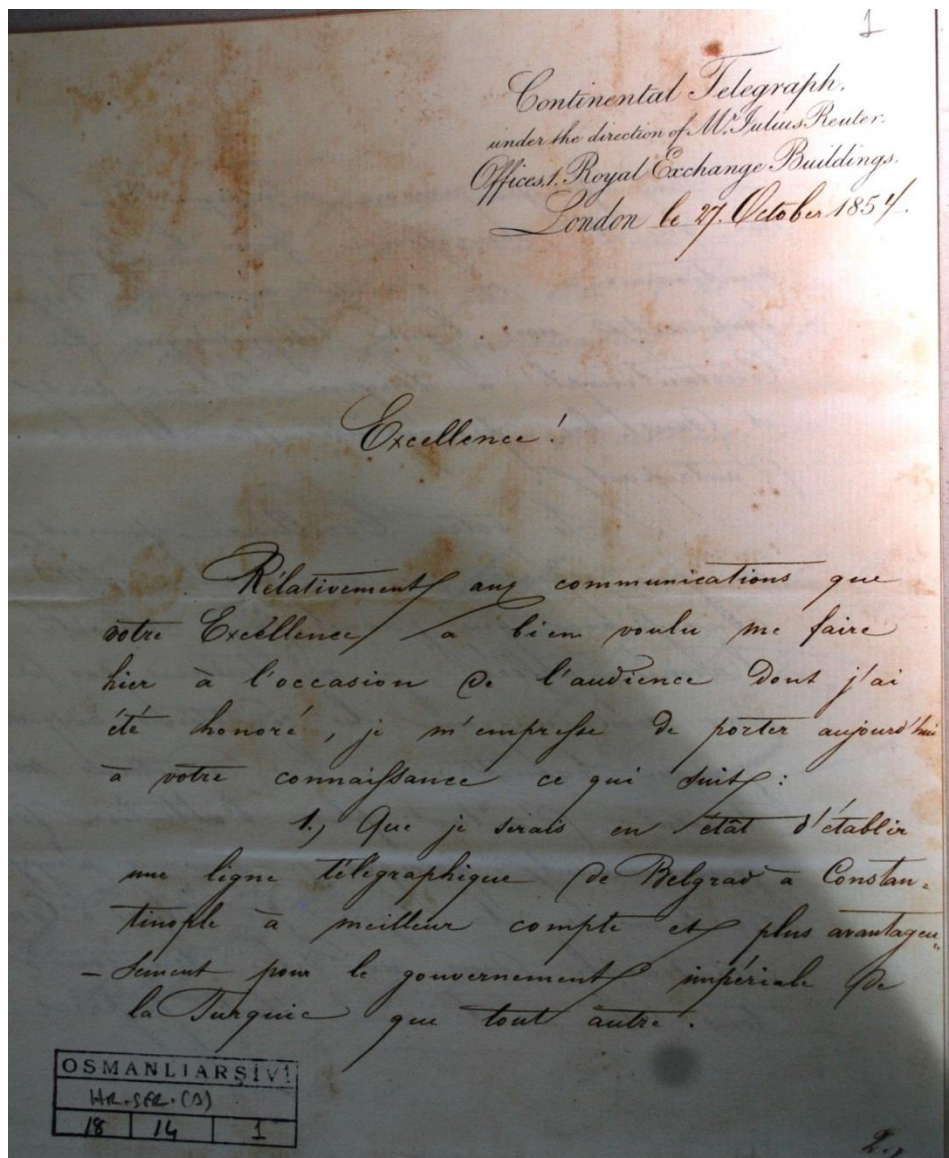 1
Continental Telegraph.
under the direction of Mr Julius Reuter.
Offices.1. Royal Exchange Buildings.
London le 27. October 1854.
Excellence!
Rélativement aux communications que
votre Excéllence a bien voulu me faire
hier à l'occasion de l'audience dont j'ai
été honoré, je m'empresse de porter aujourd'hui
à votre connaissance ce qui suit:
1.) Que je serais en état d'établir
une ligne télégraphique de Belgrad à Constan=
tinople à meilleur compte et plus avantageu=
-sement pour le gouvernement impériale de
la Turquie que tout autre.
OSMANLI ARŞİVİ
HR.SFR.(3)
18 14 1
2.)